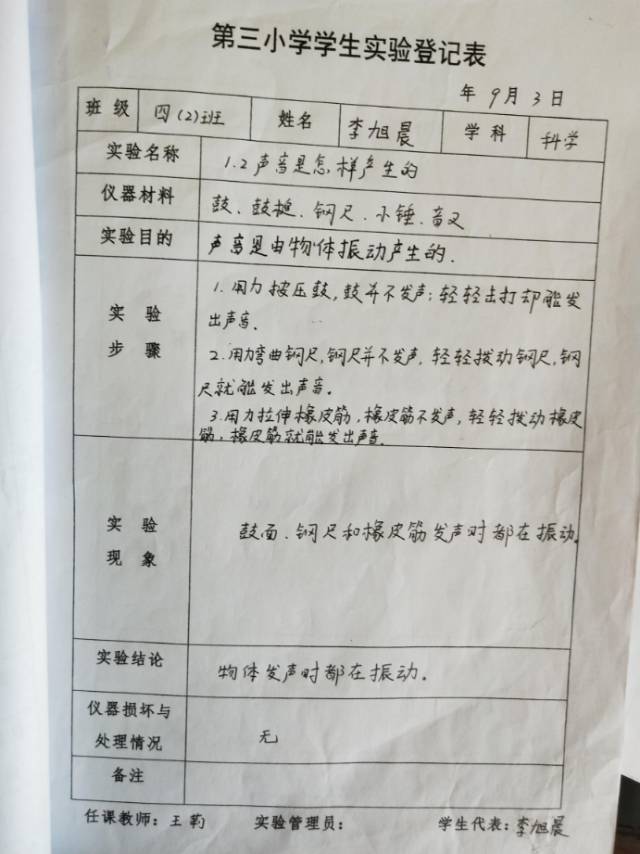 第三小学学生实验登记表
年 9月 3日
班级 四(2)班 姓名 李旭晨 学科 科学
实验名称 1.2声音是怎样产生的
仪器材料 鼓、鼓槌、钢尺、小锤、音叉
实验目的 声音是由物体振动产生的.
实验步骤
1.用力按压鼓,鼓并不发声;轻轻击打却能发
出声音.
2.用力弯曲钢尺,钢尺并不发声,轻轻拨动钢尺,钢
尺就能发出声音。
3.用力拉伸橡皮筋,橡皮筋不发声,轻轻拨动橡皮
筋,橡皮筋就能发出声音.
实验现象
鼓面、钢尺和橡皮筋发声时都在振动.
实验结论 物体发声时都在振动.
仪器损坏与
处理情况 无
备注
任课教师:王 实验管理员: 学生代表:李旭晨